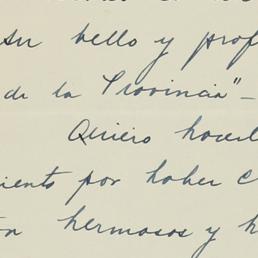 su bello y prof
de la Provincia" –
Quiero hacerl
iento por haber c
on hermosos y h